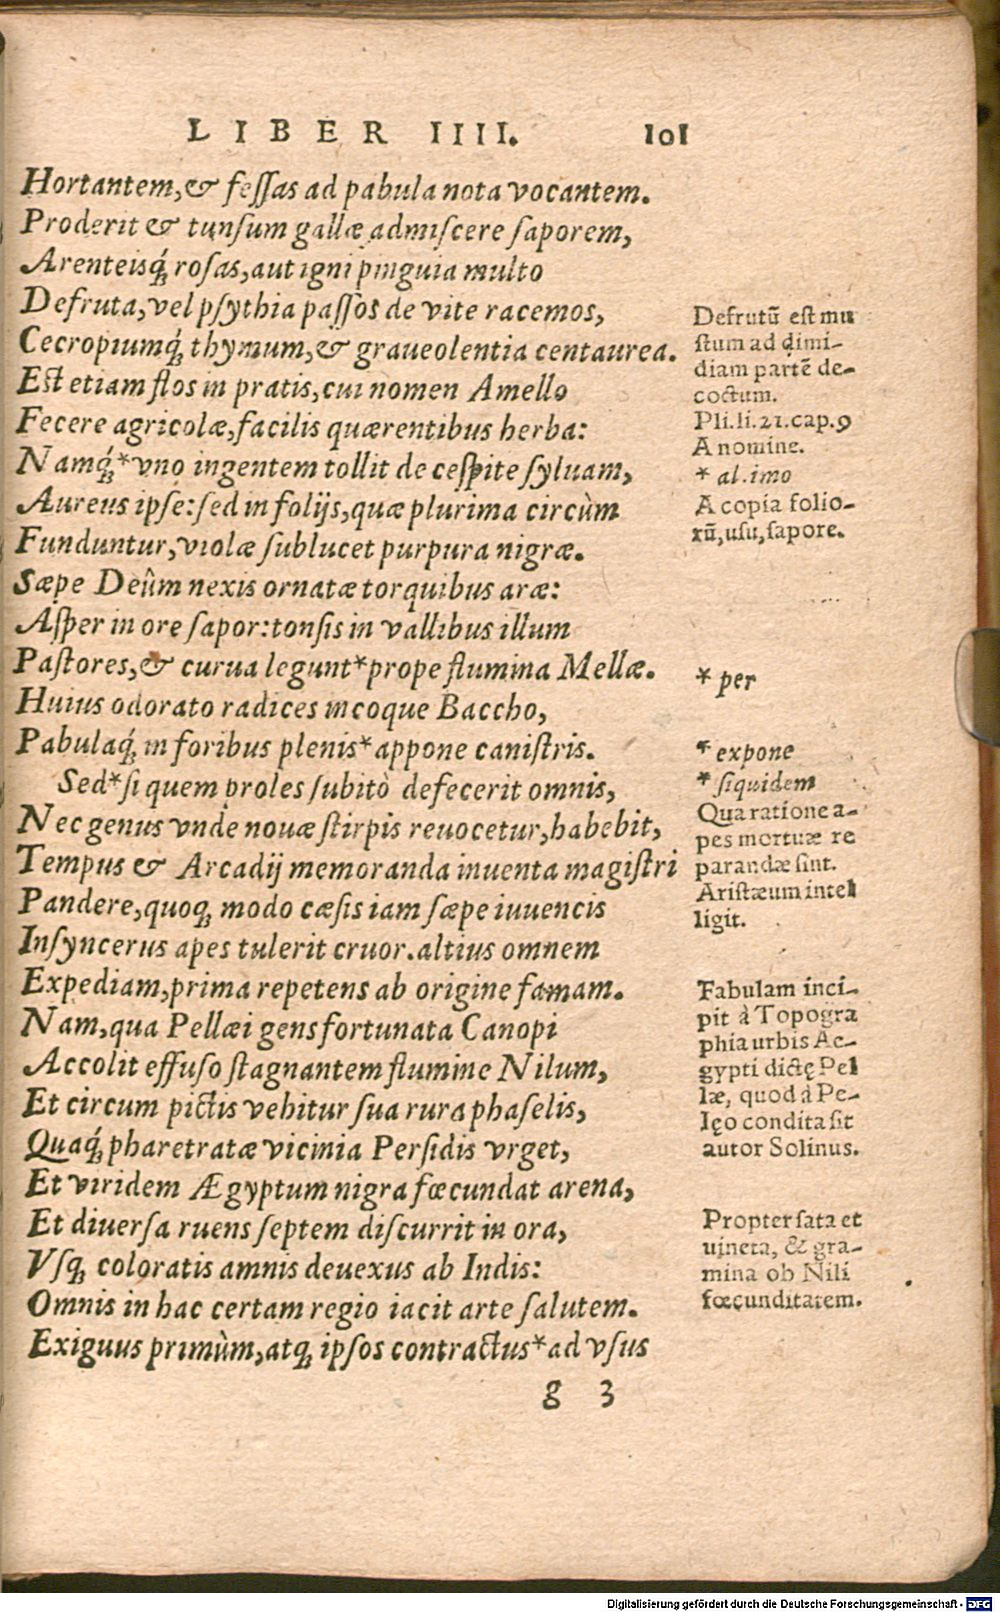 LIBER IIII. 101
Hortantem, & fessas ad pabula nota vocantem.
Proderit & tunsum gallæ admiscere saporem,
Arenteisq́; rosas, aut igni pinguia multo
Defruta, vel psythia passos de vite racemos,
Cecropiumq́; thymum, & graueolentia centaurea.
Est etiam flos in pratis, cui nomen Amello
Fecere agricolæ, facilis quærentibus herba:
Namq́;*vno ingentem tollit de cespite syluam,
Aureus ipse: sed in folijs, quæ plurima circùm
Funduntur, violæ sublucet purpura nigræ.
Sæpe Deûm nexis ornatæ torquibus aræ:
Asper in ore sapor: tonsis in vallibus illum
Pastores, & curua legunt*prope flumina Mellæ.
Huius odorato radices incoque Baccho,
Pabulaq́; in foribus plenis*appone canistris.
Sed*si quem proles subitò defecerit omnis,
Nec genus vnde nouæ stirpis reuocetur, habebit,
Tempus & Arcadij memoranda inuenta magistri
Pandere, quoq; modo cæsis iam sæpe iuuencis
Insyncerus apes tulerit cruor. altius omnem
Expediam, prima repetens ab origine famam.
Nam, qua Pellæi gens fortunata Canopi
Accolit effuso stagnantem flumine Nilum,
Et circum pictis vehitur sua rura phaselis,
Quaq́; pharetratæ vicinia Persidis vrget,
Et viridem Ægyptum nigra fœcundat arena,
Et diuersa ruens septem discurrit in ora,
Vsq; coloratis amnis deuexus ab Indis:
Omnis in hac certam regio iacit arte salutem.
Exiguus primùm, atq; ipsos contractus*ad vsus
g 3
Defrutũ est mu
stum ad dimi-
diam partẽ de-
coctum.
Pli.li.21.cap.9
A nomine.
* al.imo
A copia folio-
rũ, usu, sapore.
* per
* expone
* siquidem
Qua ratione a-
pes mortuæ re
parandæ sint.
Aristæum intel
ligit.
Fabulam inci-
pit à Topogra
phia urbis Ae-
gypti dictę Pel
læ, quod à Pe-
lęo condita sit
autor Solinus.
Propter sata et
uineta, & gra-
mina ob Nili
fœcunditatem.
Digitalisierung gefördert durch die Deutsche Forschungsgemeinschaft - DFG